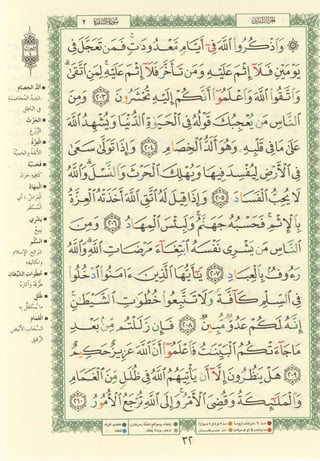 الجزء الثاني
سورة البقرة ٢
۞ وَاذْكُرُوا اللَّهَ فِي أَيَّامٍ مَعْدُودَاتٍ فَمَنْ تَعَجَّلَ فِي
يَوْمَيْنِ فَلَا إِثْمَ عَلَيْهِ وَمَنْ تَأَخَّرَ فَلَا إِثْمَ عَلَيْهِ لِمَنِ اتَّقَى
وَاتَّقُوا اللَّهَ وَاعْلَمُوا أَنَّكُمْ إِلَيْهِ تُحْشَرُونَ ٢٠٣ وَمِنَ
النَّاسِ مَنْ يُعْجِبُكَ قَوْلُهُ فِي الْحَيَاةِ الدُّنْيَا وَيُشْهِدُ اللَّهَ
عَلَى مَا فِي قَلْبِهِ وَهُوَ أَلَدُّ الْخِصَامِ ٢٠٤ وَإِذَا تَوَلَّى سَعَى
فِي الْأَرْضِ لِيُفْسِدَ فِيهَا وَيُهْلِكَ الْحَرْثَ وَالنَّسْلَ وَاللَّهُ
لَا يُحِبُّ الْفَسَادَ ٢٠٥ وَإِذَا قِيلَ لَهُ اتَّقِ اللَّهَ أَخَذَتْهُ الْعِزَّةُ
بِالْإِثْمِ فَحَسْبُهُ جَهَنَّمُ وَلَبِئْسَ الْمِهَادُ ٢٠٦ وَمِنَ
النَّاسِ مَنْ يَشْرِي نَفْسَهُ ابْتِغَاءَ مَرْضَاتِ اللَّهِ وَاللَّهُ
رَءُوفٌ بِالْعِبَادِ ٢٠٧ يَا أَيُّهَا الَّذِينَ آمَنُوا ادْخُلُوا
فِي السِّلْمِ كَافَّةً وَلَا تَتَّبِعُوا خُطُوَاتِ الشَّيْطَانِ
إِنَّهُ لَكُمْ عَدُوٌّ مُبِينٌ ٢٠٨ فَإِنْ زَلَلْتُمْ مِنْ بَعْدِ
مَا جَاءَتْكُمُ الْبَيِّنَاتُ فَاعْلَمُوا أَنَّ اللَّهَ عَزِيزٌ حَكِيمٌ
٢٠٩ هَلْ يَنْظُرُونَ إِلَّا أَنْ يَأْتِيَهُمُ اللَّهُ فِي ظُلَلٍ مِنَ الْغَمَامِ
وَالْمَلَائِكَةُ وَقُضِيَ الْأَمْرُ وَإِلَى اللَّهِ تُرْجَعُ الْأُمُورُ ٢١٠
ألد الخصام
شديد المخاصمة
في الباطل
الحرث
الزرع
العزة
الأنفة والحمية
فحسبه
كافيه جزاء
المهاد
الفراش، أي
المستقر
يشري
يبيع
السلم
شرائع الإسلام
وتكاليفه
خطوات الشيطان
طرقه وآثاره
ظلل
ما يستظل به
الغمام
السحاب الأبيض
الرقيق
٣٢